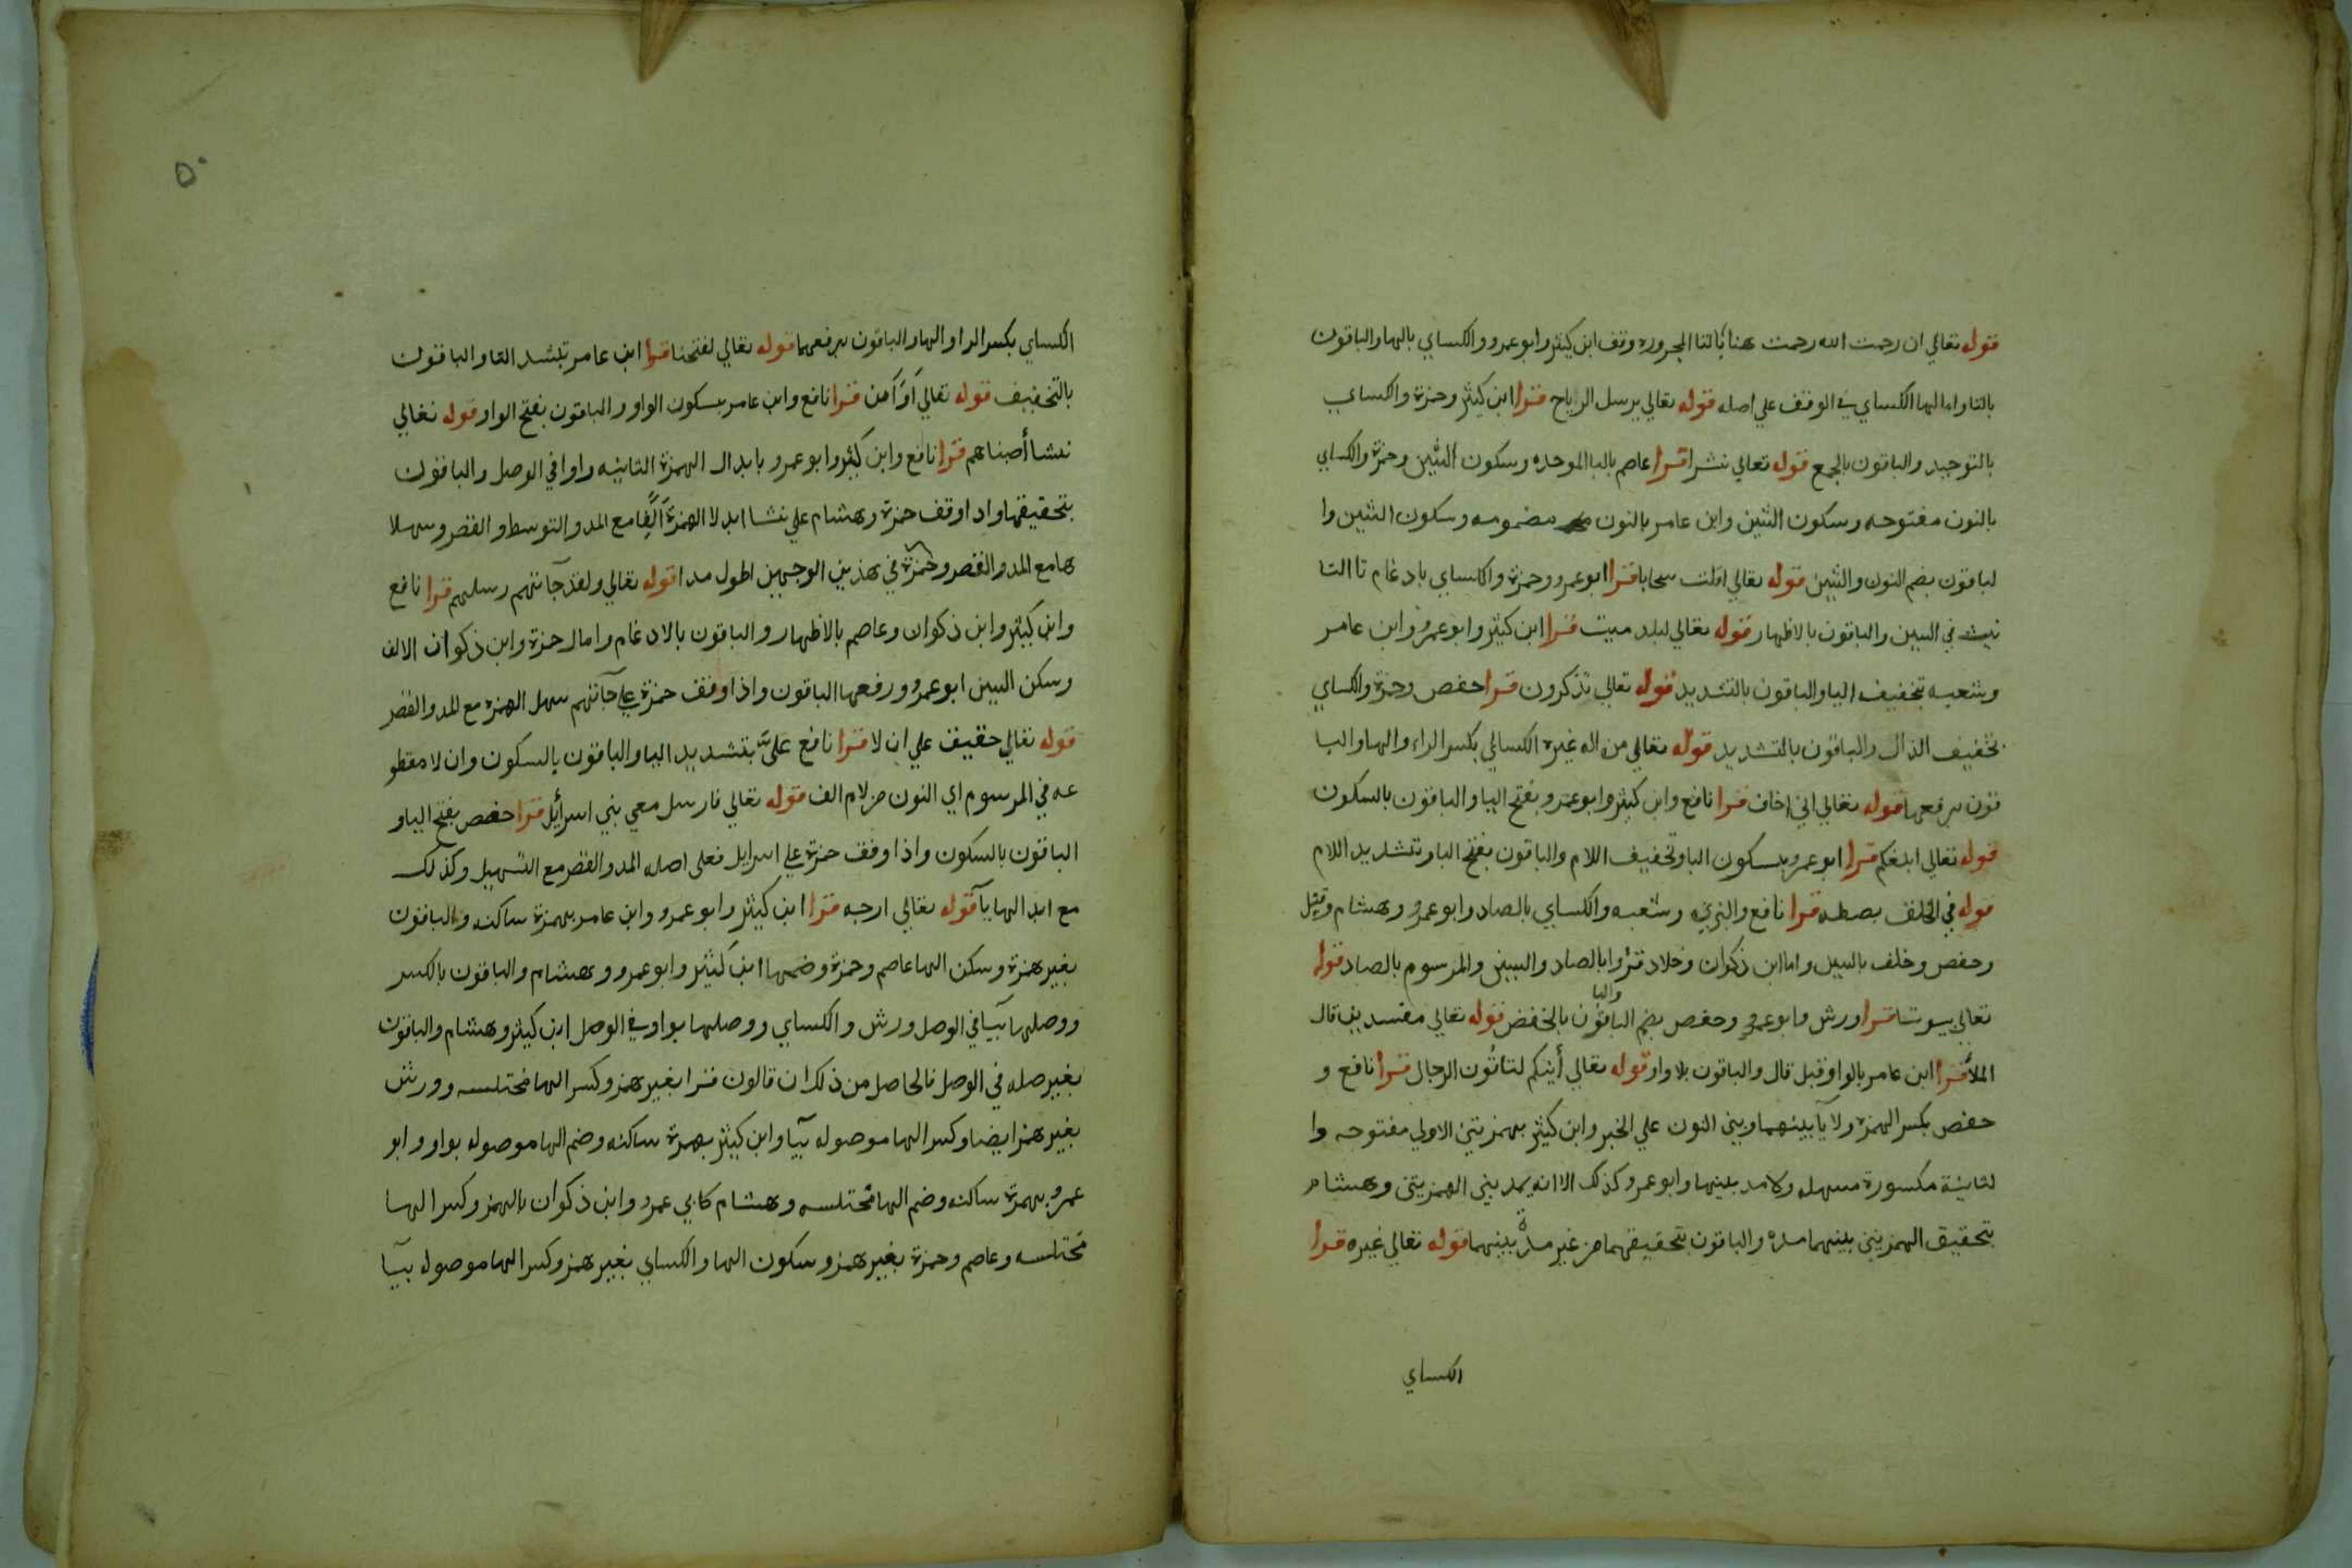 قوله تعالي ان رحمت الله رحمت هنا بالتا المجروره وقف ابن كيثر وابو عمرو والكساي بالها والباقون
بالتا واما لها الكساي في الوقف علي اصله قوله تعالي يرسل الرياح قرا ابن كيثر وحمزة والكساي
بالتوحيد والباقون بالجمع قوله تعالي نشرا قرا عاصم بالبا الموحده وسكون الشين وحمزة والكساي
بالنون مفتوحه وسكون الشين وابن عامر بالنون مضمومه وسكون الشين وا
لباقون بضم النون والشين قوله تعالي اقلت سحابا قرا ابو عمرو وحمزة والكساي بادغام تا التا
نيث في السين والباقون بالاظهار قوله تعالي لبلد ميت قرا ابن كيثر وابو عمرو وابن عامر
وشعبه بتخفيف اليا والباقون بالتشديد قوله تعالي تذكرون قرا حفص وحمزة والكساي
بتخفيف الذال والباقون بالتشديد قوله تعالي من اله غيره الكسائي بكسر الراء والها والبا
قون برفعها قوله تعالي اني اخاف قرا نافع وابن كيثر وابو عمرو بفتح اليا والباقون بالسكون
قوله تعالي ابلغكم قرا ابو عمرو بسكون البا وتخفيف اللام والباقون بفتح البا وتشديد اللام
قوله في الخلق بصطه قرا نافع والبزي وشعبه والكساي بالصاد وابو عمرو وهشام وقنبل
وحفص وخلف بالسين واما ابن ذكوان وخلاد قرؤا بالصاد والسين والمرسوم بالصاد قوله
تعالي بيوتا قرا ورش وابو عمرو وحفص بضم البا والباقون بالخفض قوله تعالي مفسدين قال
الملأ قرا ابن عامر بالواو قبل قال والباقون بلا واو قوله تعالي أينكم لتاتُون الرجال قرا نافع و
حفص بكسر الهمزة ولا يآ بينهما وبين النون علي الخبر وابن كيثر بهمزتين الاولي مفتوحه وا
لثانية مكسورة مسهله ولا مد بينها وابو عمرو كذلك الا انه يمد بين الهمزيتن وهشام
بتحقيق الهمزيتن بينهما مده والباقون بتحقيقهما من غير مدة بينهما قوله تعالي غيره قرا
الكساي
٥٠
الكساي بكسر الرا والها والباقون برفعهما قوله تعالي لفتحنا قرا ابن عامر بتشد التا والباقون
بالتخفيف قوله تعالي أوَأمن قرا نافع وابن عامر بسكون الواو والباقون بفتح الواو قوله تعالي
نشا أصبناهم قرا نافع وابن كيثر وابو عمرو بابدال الهمزة الثانيه واوا في الوصل والباقون
بتحقيقها واد اوقف حمزة وهشام علي نشا ابدلا الهمزة ألفا مع المد والتوسط والقصر وسهلا
ها مع المد والقصر وحمزة في هذين الوجهين اطول مدا قوله تعالي ولقد جآتهم رسلهم قرا نافع
وابن كيثر وابن ذكوان وعاصم بالاظهار والباقون بالادغام وامال حمزة وابن ذكوان الالف
وسكن السين ابو عمرو ورفعها الباقون واذا وقف حمزة علي جآتهم سهل الهمزه مع المد والقصر
قوله تعالي حقيق علي ان لا قرا نافع عليَّ بتشديد اليا والباقون بالسكون وان لا مقطو
عه في المرسوم اي النون من لام الف قوله تعالي فارسل معي بني اسرأيل قرا حفص بفتح اليا و
الباقون بالسكون واذا وقف حمزة علي اسرايل فعلي اصله المد والقصر مع التسهيل وكذلك
مع ابدالها يآ قوله تعالي ارجه قرا ابن كيثر وابو عمرو وابن عامر بهمزة ساكنه والباقون
بغير همزة وسكن الها عاصم وحمزة وضمها ابن كيثر وابو عمرو وهشام والباقون بالكسر
ووصلها بيآ في الوصل ورش والكساي ووصلها بواو في الوصل ابن كيثر وهشام والباقون
بغير صله في الوصل فالحاصل من ذلك ان قالون قرا بغير همز وكسر الها مختلسه وورش
بغير همز ايضا وكسر الها موصوله بيآ وابن كيثر بهمزة ساكنه وضم الها موصوله بواو وابو
عمرو بهمزة ساكنه وضم الها مختلسه وهشام كابي عمرو وابن ذكوان بالهمز وكسر الها
مختلسه وعاصم وحمزة بغير همز وسكون الها والكساي بغير همز وكسر الها موصوله بيآ